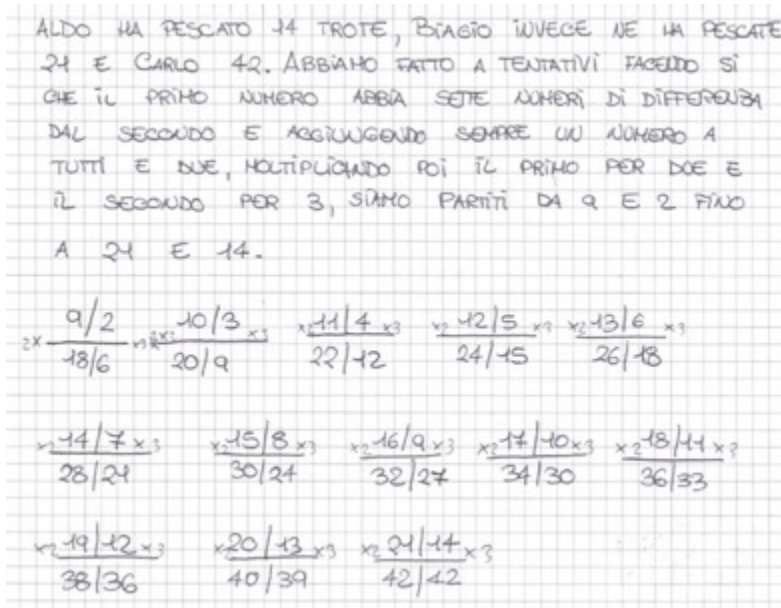 ALDO HA PESCATO 14 TROTE, BIAGIO INVECE NE HA PESCATE
21 E CARLO 42. ABBIAMO FATTO A TENTATIVI FACENDO SI
CHE IL PRIMO NUMERO ABBIA SETTE NUMERI DI DIFFERENZA
DAL SECONDO E AGGIUNGENDO SEMPRE UN NUMERO A
TUTTI E DUE, MOLTIPLICANDO POI IL PRIMO PER DUE E
IL SECONDO PER 3, SIAMO PARTITI DA 9 E 2 FINO
A 21 E 14.
2x 9/2 x3 x2 10/3 x3 x2 11/4 x3 x2 12/5 x3 x2 13/6 x3
18/6 20/9 22/12 24/15 26/18
x2 14/7 x3 x2 15/8 x3 x2 16/9 x3 x2 17/10 x3 x2 18/11 x3
28/21 30/24 32/27 34/30 36/33
x2 19/12 x3 x2 20/13 x3 x2 21/14 x3
38/36 40/39 42/42